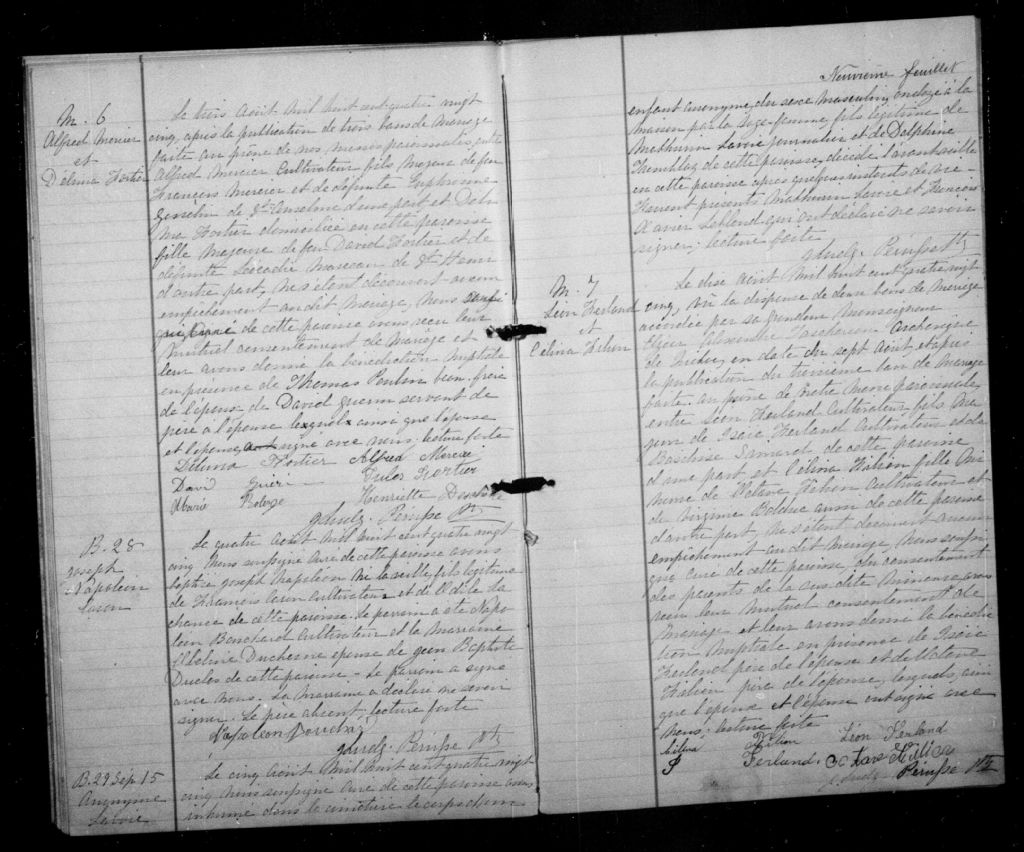 M. 6
Alfred Mercier
et
Delima Fortier
Le trois Aoit Mil huit cent quatre vingt
cinq, après la publication de trois bans de Mariage
faite au prône de nos messes paroissiales, entre
Alfred Mercier Cultivateur fils Majeur de feu
François Mercier et de défunte Euphrosine
de St Anselme d'une part, et Deli
ma Fortier domiciliée en cette paroisse
fille Majeure de feu David Fortier et de
défunte Léocadie Marceau de St Henri
d'autre part, ne s'étant découvert aucun
empêchement au dit Mariage, Nous soussi
gné Curé de cette paroisse avons reçu leur
Mutuel consentement de Mariage et
leur avons donné la bénédiction nuptiale
en présence de Thomas Poulin beau frère
de l'époux de David guerin servant de
père à l'épouse lesquels ainsi que l'épouse
et l'époux ont signé avec nous; lecture faite
Delima Fortier Alfred Mercier
David Jules Fortier
Marie Henriette
Ptre
B. 28
Joseph
Napoléon
Caron
Le quatre Aout Mil huit cent quatre vingt
cinq Nous soussigné Curé de cette paroisse avons
baptisé Joseph Napoléon né la veille fils légitime
de François Caron Cultivateur et de Odile La
chance de cette paroisse. Le parrain a été Napo
léon Bouchard Cultivateur et la Marraine
Duchesne épouse de Jean Baptiste
Duclos de cette paroisse - Le parrain a signé
avec Nous. La Marraine a déclaré ne savoir
signer. Le père absent; lecture faite
Napoleon Bouchard
Ptr
B. 29 Sép. 15
Anonyme
Lavoie
Le cinq Aoit Mil huit cent quatre vingt
cinq Nous soussigné Curé de cette paroisse avons
inhumé dans le cimetière le corps d'un
Neuvième feuillet
enfant anonyme, du sexe Masculin, ondoyé à la
maison par la sage-femme, fils légitime de
Mathurin Lavoie journalier et de Delphine
Tremblay de cette paroisse, décédé l'avant veille
en cette paroisse après quelques instants de vie -
Furent présents Mathurin Lavoie et François
Xavier Leblond qui ont déclaré ne savoir
signer; lecture faite
Ptr
M. 7
Léon Ferland
et
Célina Filion
Le dix Aoit Mil huit cent quatre vingt
cinq, vu la dispense de deux bans de Mariage
accordée par sa Grandeur Monseigneur
Elzéar Alexandre Taschereau Archevêque
de Québec, en date du sept Aoit, et après
la publication du troisième ban de Mariage
faite au prône de Notre Messe paroissiale
entre Léon Ferland Cultivateur fils Ma
jeur de Isaïe Ferland Cultivateur et de
de cette paroisse
d'une part et Célina Filion fille Mi
neure de Octave Filion Cultivateur et
de Virginie Bolduc aussi de cette paroisse
d'autre part, ne s'étant découvert aucun
empêchement au dit Mariage, Nous soussi
gné Curé de cette paroisse, du consentement
des parents de la sus dite Mineure avons
reçu leur Mutuel consentement de
Mariage et leur avons donné la bénédic
tion Nuptiale en présence de Isaïe
Ferland père de l'époux et de Octave
Filion père de l'épouse, lesquels ainsi
que l'époux et l'épouse ont signé avec
Nous; lecture faite
Célina Filion Léon Ferland
Ferland. Octave Filion
Ptr